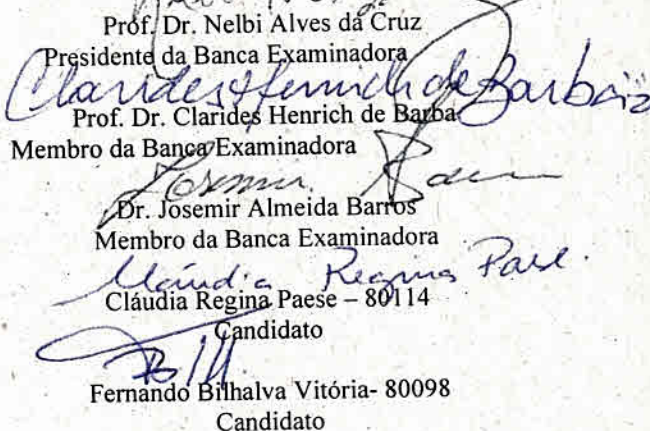 Prof. Dr. Nelbi Alves da Cruz
Presidente da Banca Examinadora
Clarides Henrich de Barba
Prof. Dr. Clarides Henrich de Barba
Membro da Banca Examinadora
Josemir
Dr. Josemir Almeida Barros
Membro da Banca Examinadora
Cláudia Regina Paese
Cláudia Regina Paese – 80114
Candidato
Fernando Bilhalva Vitória- 80098
Candidato